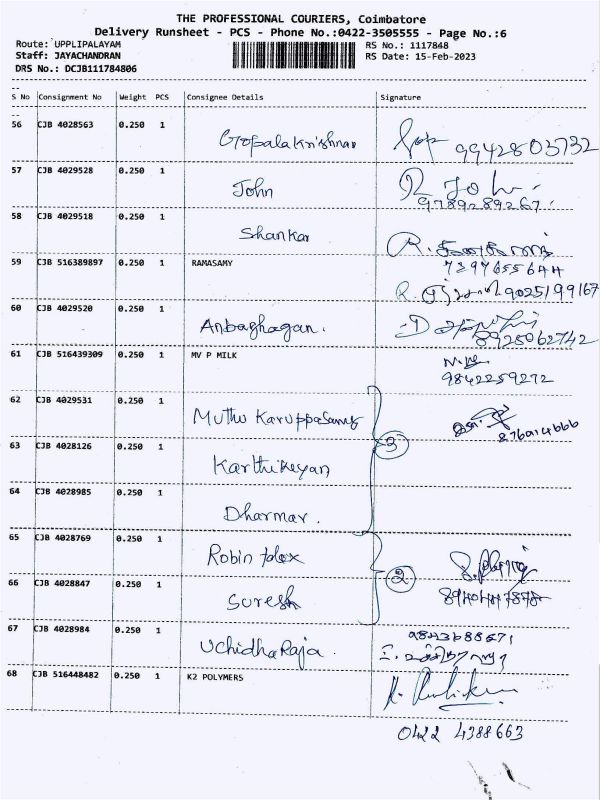 THE PROFESSIONAL COURIERS, Coimbatore
Delivery Runsheet - PCS - Phone No.:0422-3505555 - Page No.:6
Route: UPPLIPALAYAM
RS No.: 1117848
Staff: JAYACHANDRAN
RS Date: 15-Feb-2023
DRS No.: DCJB111784806
S No Consignment No Weight PCS Consignee Details Signature
56 CJB 4028563 0.250 1
Gopalakrishnan 9942803732
57 CJB 4029528 0.250 1
John R John
9789289267
58 CJB 4029518 0.250 1
Shankar
7397655644
59 CJB 516389897 0.250 1 RAMASAMY
9025199167
60 CJB 4029520 0.250 1
Anbaghagan.
8925062742
61 CJB 516439309 0.250 1 MV P MILK
9842259272
62 CJB 4029531 0.250 1
Muthu Karuppasamy
63 CJB 4028126 0.250 1 3
Karthikeyan
64 CJB 4028985 0.250 1
Dharmar.
65 CJB 4028769 0.250 1
Robin
66 CJB 4028847 0.250 1 2
Suresh
67 CJB 4028984 0.250 1
9843688671
UchidhaRaja.
68 CJB 516448482 0.250 1 K2 POLYMERS
0422 4388663